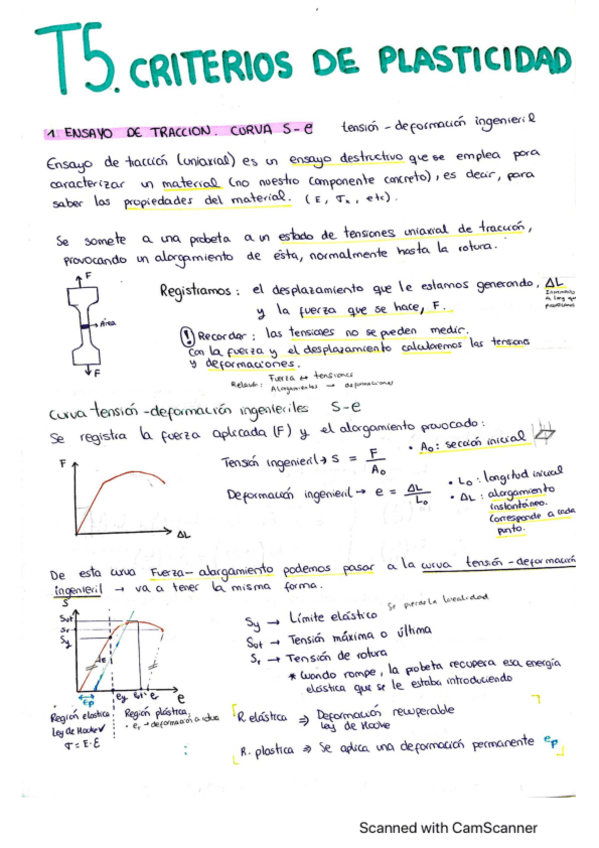 T5. CRITERIOS DE PLASTICIDAD
1. ENSAYO DE TRACCION. CURVA S-e tensión - deformación ingenieril
Ensayo de tracción (uniaxial) es un ensayo destructivo que se emplea para
caracterizar un material (no nuestro componente concreto), es decir, para
saber las propiedades del material. (E, σx, etc).
Se somete a una probeta a un estado de tensiones uniaxial de tracción,
provocando un alargamiento de esta, normalmente hasta la rotura.
F
Área
F
Registramos: el desplazamiento que le estamos generando, ΔL
y la fuerza que se hace, F.
! Recordar: las tensiones no se pueden medir.
Con la fuerza y el desplazamiento calcularemos las tensiones
y deformaciones.
Fuerza ↔ tensiones
Alargamientos → deformaciones
Curva tensión - deformación ingenieriles S-e
Se registra la fuerza aplicada (F) y el alargamiento provocado:
F
ΔL
Tensión ingenieril → S = F / A₀
• A₀: sección inicial
Deformación ingenieril → e = ΔL / L₀
• L₀: longitud inicial
• ΔL: alargamiento
instantáneo.
Corresponde a cada
punto.
De esta curva Fuerza - alargamiento podemos pasar a la curva tensión - deformación
ingenieril → va a tener la misma forma.
S
Sut
Sr
Sy
Δe
ep
ey
er
e
Sy → Límite elástico Se pierde la linealidad
Sut → Tensión máxima o última
Sr → Tensión de rotura
* Cuando rompe, la probeta recupera esa energía
elástica que se le estaba introduciendo
Región elastica
Ley de Hooke ✓
σ = E·ε
Región plástica.
R elástica ⇒ Deformación recuperable
Ley de Hooke
R. plastica ⇒ Se aplica una deformación permanente ep
Scanned with CamScanner